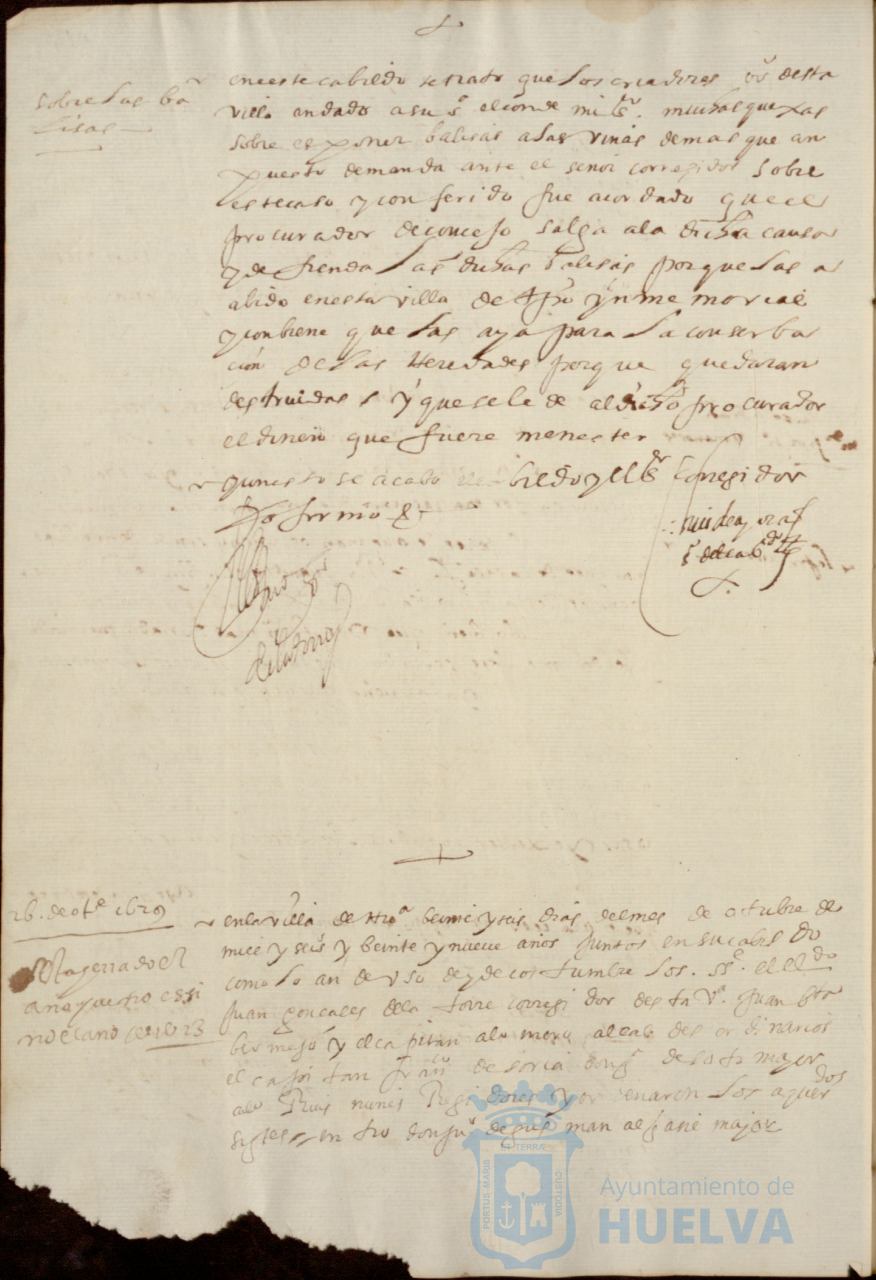 sobre las ba
lisas
en este cabildo se trato que los criadores vºs desta
villa an dado a su sª el conde mi sr. muchas quexas
sobre el poner balisas a las viñas demas que an
puesto demanda ante el señor corregidor sobre
este caso y conferido fue acordado que el
procurador de concejo salga a la dicha causa
y defienda las dichas balisas porque las a
abido en esta villa de tpo ynmemorial
y conbiene que las aya para la conserba
cion de las heredades porque quedaran
destruidas y que se le de al dicho procurador
el dinero que fuere menester
y con esto se acabo el cabildo y el sr corregidor
lo firmo
26. de ote 1629
esta herrado el
año questo es si
no el año de 1623
en la villa de
beinte y seis dias del mes de octubre de
mill y seis y beinte y nueve años juntos en su cabildo
como lo an de uso y de costumbre los. ss. el lldo
juan gonçales de la torre corregidor desta vª. juan
bermejo y el capitan alº alcaldes ordinarios
el capitan franco de soria
alº Ruis nuñes Regidores y ordenaron los aquerdos
sigtes en tro don juº de gusman alguasil mayor
PORTUS MARIS
ET TERRÆ
CUSTODIA
Ayuntamiento de
HUELVA